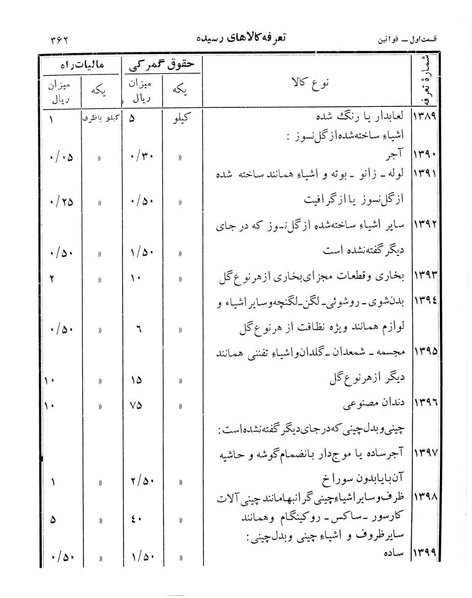 قسمت اول ــ قوانین تعرفه کالاهای رسیده ۳۶۲
شمارهٔ تعرفه نوع کالا حقوق گمرکی مالیات راه
یکه میزان ریال یکه میزان ریال
۱۳۸۹ لعابدار یا رنگ شده کیلو ۵ کیلو باظرف ۱
اشیاء ساخته شده از گل نسوز :
۱۳۹۰ آجر » ۰/۳۰ » ۰/۰۵
۱۳۹۱ لوله ـ زانو ـ بوته و اشیاء همانند ساخته شده
از گل نسوز یا از گرافیت » ۰/۵۰ » ۰/۲۵
۱۳۹۲ سایر اشیاء ساخته شده از گل نسوز که در جای
دیگر گفته نشده است » ۱/۵۰ » ۰/۵۰
۱۳۹۳ بخاری و قطعات مجزای بخاری از هر نوع گل » ۱۰ » ۲
۱۳۹۴ بدن شوی ـ روشوئی ـ لگن ـ لگنچه و سایر اشیاء و
لوازم همانند ویژه نظافت از هر نوع گل » ۶ » ۰/۵۰
۱۳۹۵ مجسمه ـ شمعدان ـ گلدان و اشیاء تفننی همانند
دیگر از هر نوع گل » ۱۵ » ۱۰
۱۳۹۶ دندان مصنوعی » ۷۵ » ۱۰
چینی و بدل چینی که در جای دیگر گفته نشده است :
۱۳۹۷ آجر ساده یا موج دار بانضمام گوشه و حاشیه
آن با یا بدون سوراخ » ۲/۵۰ » ۱
۱۳۹۸ ظرف و سایر اشیاء چینی گرانبها مانند چینی آلات
کار سور ـ ساکس ـ روکینگام و همانند » ۴۰ » ۵
سایر ظروف و اشیاء چینی و بدل چینی :
۱۳۹۹ ساده » ۱/۵۰ » ۰/۵۰